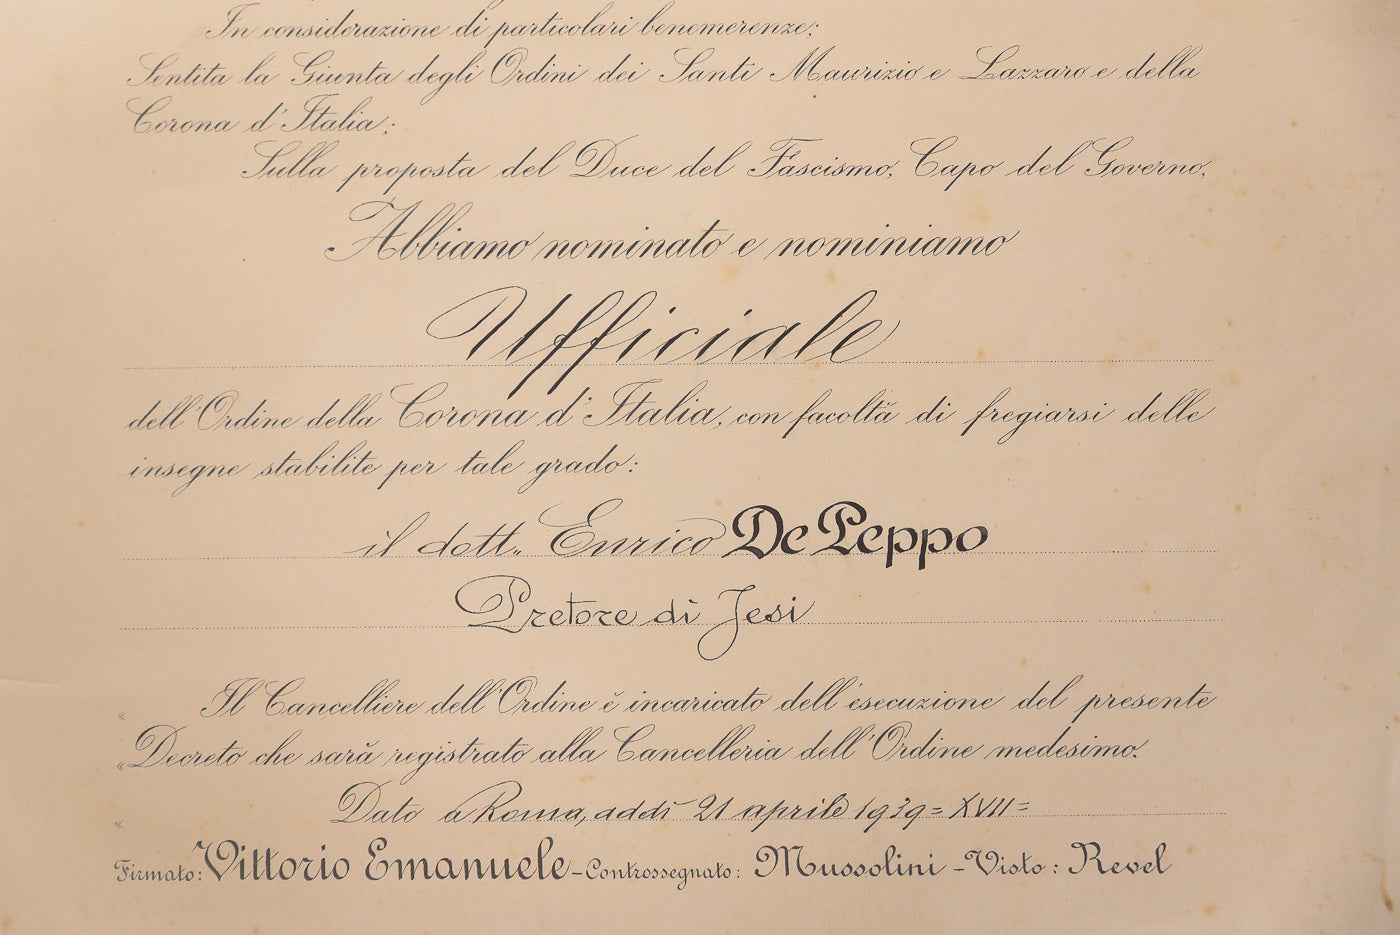 In considerazione di particolari benemerenze;
Sentita la Giunta degli Ordini dei Santi Maurizio e Lazzaro e della
Corona d'Italia;
Sulla proposta del Duce del Fascismo, Capo del Governo;
Abbiamo nominato e nominiamo
Ufficiale
dell'Ordine della Corona d'Italia, con facoltà di fregiarsi delle
insegne stabilite per tale grado:
il dott. Enrico De Peppo
Pretore di Jesi
Il Cancelliere dell'Ordine è incaricato dell'esecuzione del presente
Decreto che sarà registrato alla Cancelleria dell'Ordine medesimo.
Dato a Roma, addì 21 aprile 1939 = XVII =
Firmato: Vittorio Emanuele - Controssegnato: Mussolini - Visto: Revel